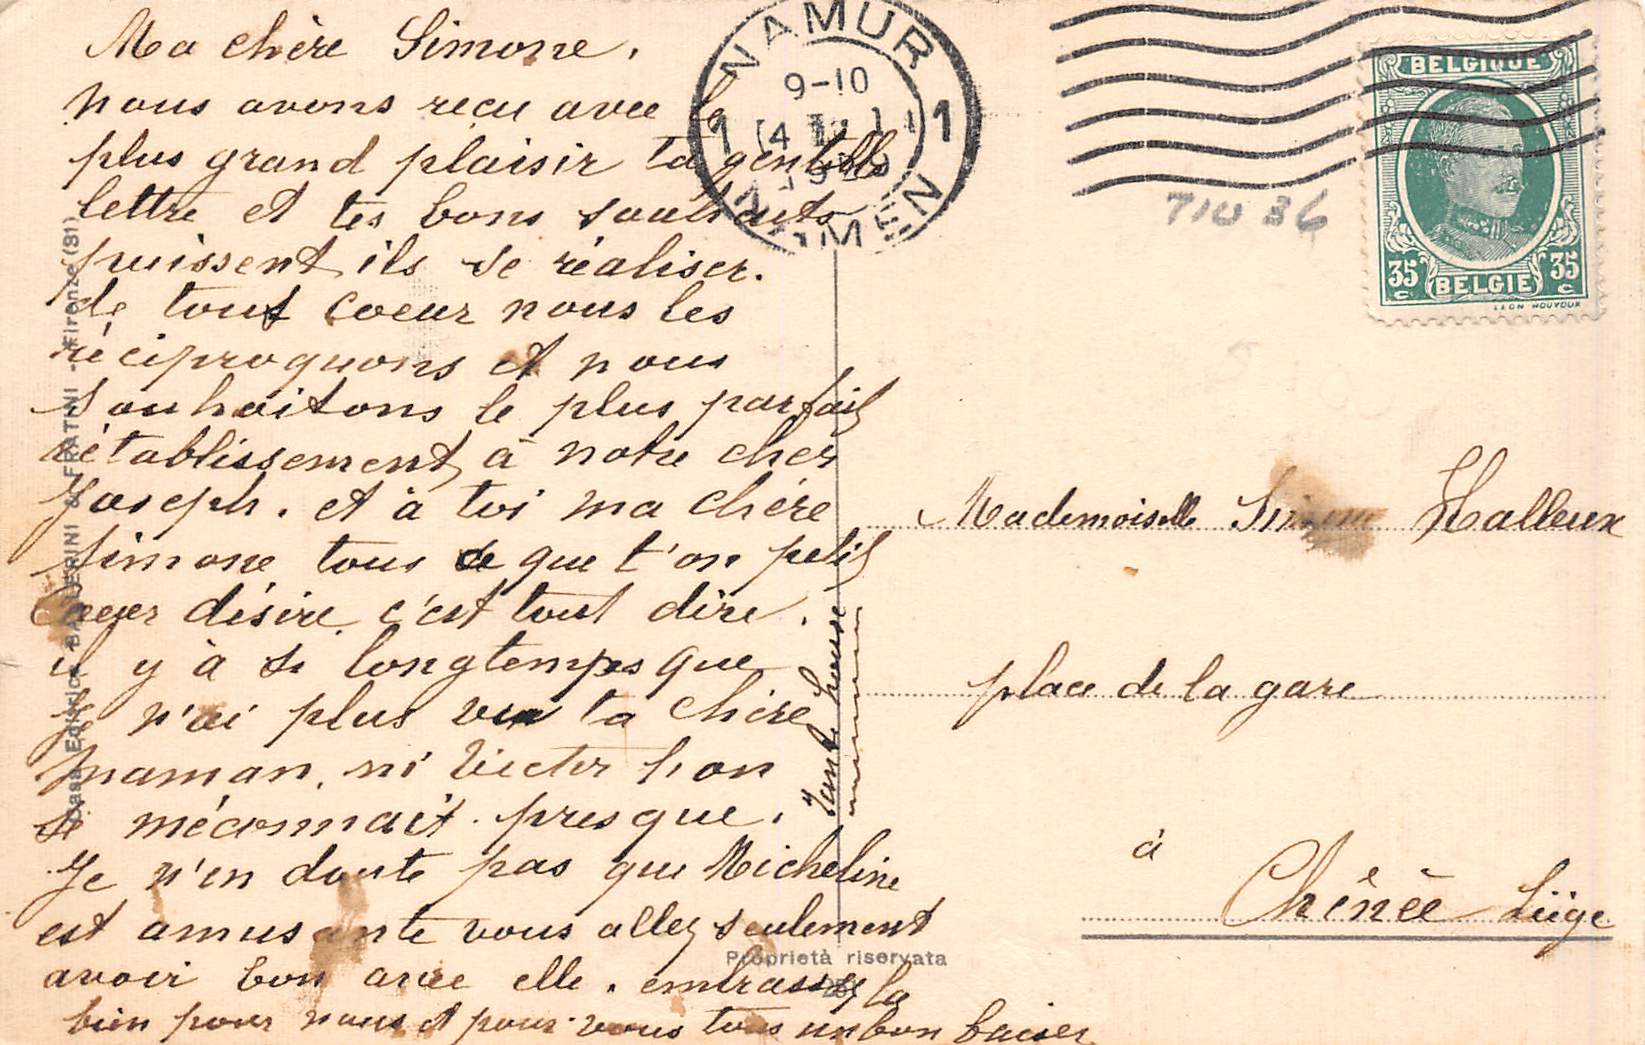 Ma chère Simone,
nous avons reçu avec la
plus grand plaisir ta gentille
lettre et tes bons souhaits
puissent ils se réaliser.
de tout coeur nous les
réciproquons et nous
souhaitons le plus parfait
rétablissement à notre cher
Joseph. et à toi ma chère
Simone tous ce que t'on petit
désire c'est tout dire.
il y à si longtemps que
je n'ai plus vu ta chère
maman, ni Victor l'on
se méconnait presque.
Je n'en doute pas que Micheline
est amusante vous allez seulement
avoir bon avec elle. embrassez la
bien pour nous et pour vous tous un bon baiser
NAMUR
9-10
1 1
NAMEN
BELGIQUE
35 c BELGIE 35 c
LEON HOUYOUX
710 36
Mademoiselle Simone Halleux
place de la gare
à
Chênée Liège
Casa Editrice BALLERINI & FRATINI - Firenze (31)
Proprietà riservata